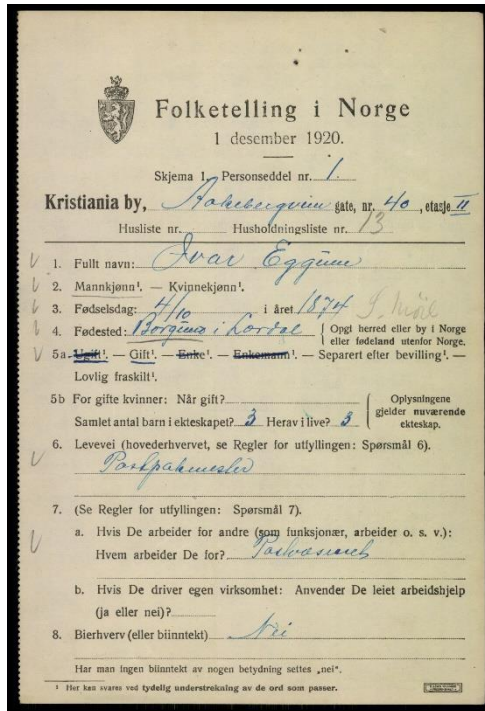 Folketelling i Norge
1 desember 1920.
Skjema 1. Personseddel nr. 1.
Kristiania by, Aakebergveien gate, nr. 40, etasje II
Husliste nr. Husholdningsliste nr. 13
1. Fullt navn: Ivar Eggum
2. Mannkjønn¹. — Kvinnekjønn¹.
3. Fødselsdag: 4/10 i året 1874
4. Fødested: Borgund i Lærdal { Opgi herred eller by i Norge
eller fødeland utenfor Norge.
5a. Ugift¹. — Gift¹. — Enke¹. — Enkemann¹. — Separert efter bevilling¹. —
Lovlig fraskilt¹.
5b For gifte kvinner: Når gift?
Samlet antal barn i ekteskapet? 3 Herav i live? 3
{ Oplysningene
gjelder nuværende
ekteskap.
6. Levevei (hovederhvervet, se Regler for utfyllingen: Spørsmål 6).
Postpakmester
7. (Se Regler for utfyllingen: Spørsmål 7).
a. Hvis De arbeider for andre (som funksjonær, arbeider o. s. v.):
Hvem arbeider De for? Postvæsenet
b. Hvis De driver egen virksomhet: Anvender De leiet arbeidshjelp
(ja eller nei)?
8. Bierhverv (eller biinntekt) Nei
Har man ingen biinntekt av nogen betydning settes „nei".
¹ Her kan svares ved tydelig understrekning av de ord som passer.